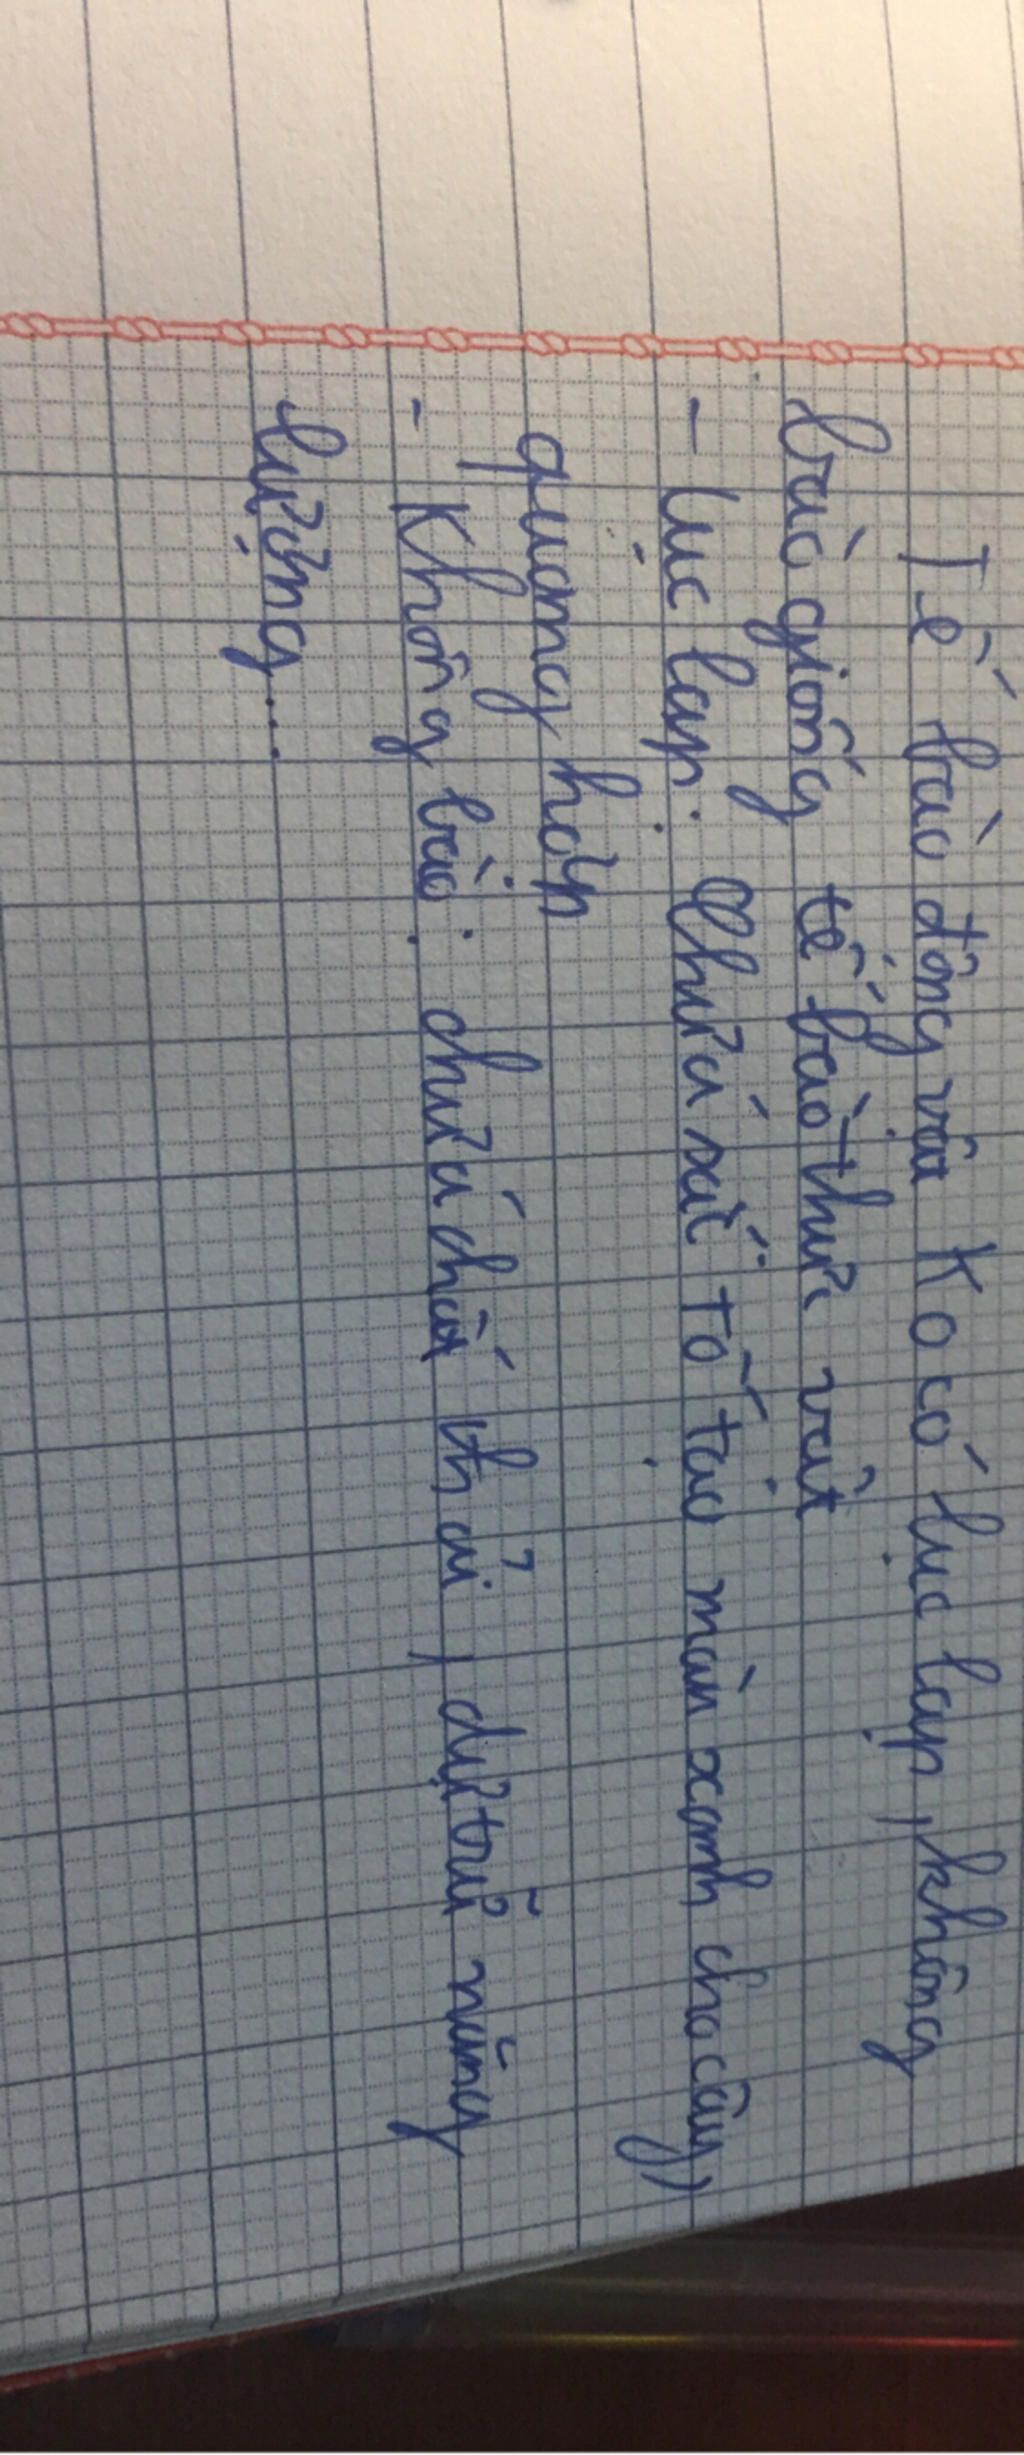 Tế bào động vật ko có lục lạp, không
bào giống tế bào thực vật
- Lục lạp: Chứa sắc tố tạo màu xanh cho cây,
quang hợp
- Không bào: chứa chất thải, dự trữ năng
lượng...